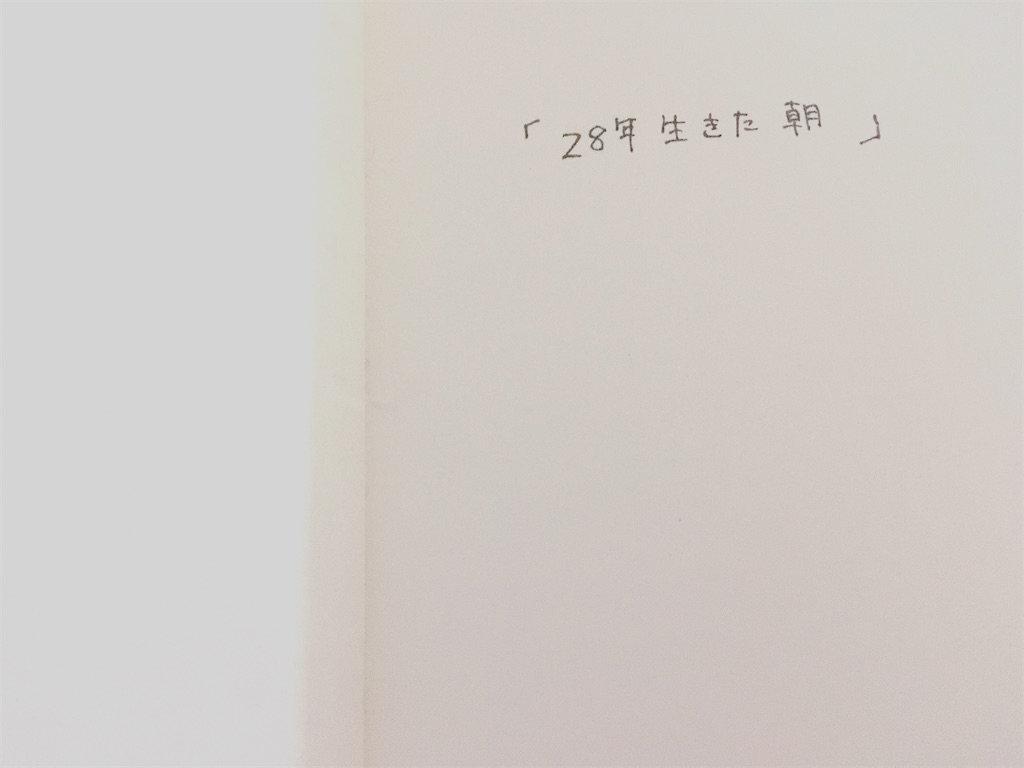 「28年生きた朝 」